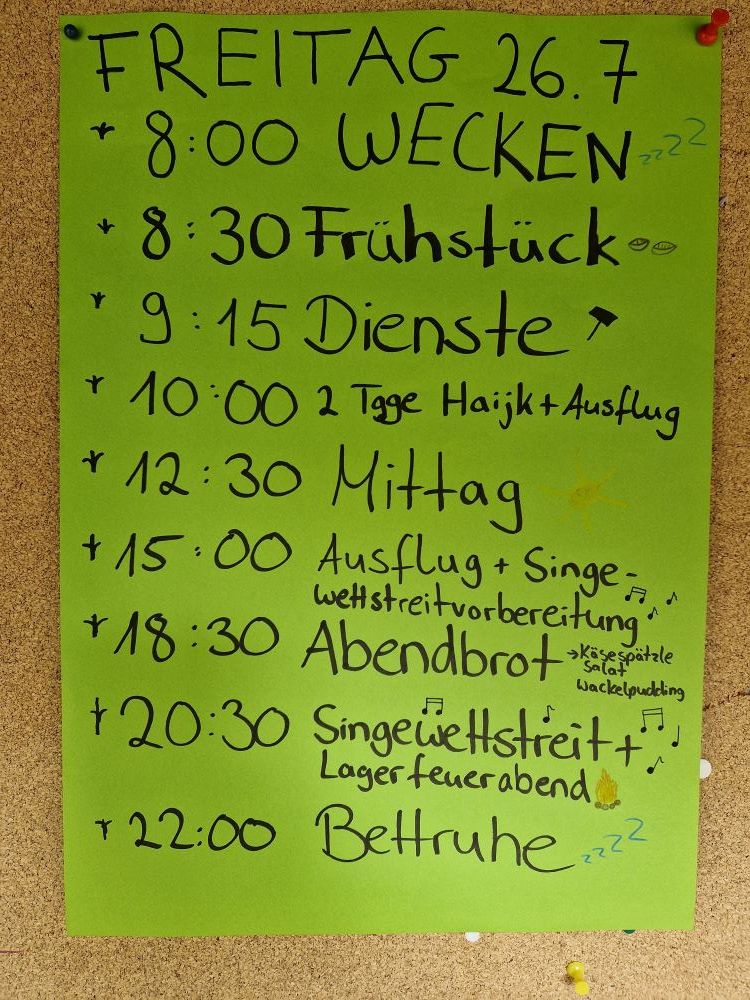 FREITAG 26.7
8:00 WECKEN zzzz
8:30 Frühstück
9:15 Dienste
10:00 2 Tage Haijk + Ausflug
12:30 Mittag
15:00 Ausflug + Singe-
wettstreitvorbereitung
18:30 Abendbrot → Käsespätzle
Salat
Wackelpudding
20:30 Singewettstreit +
Lagerfeuerabend
22:00 Bettruhe zzzz